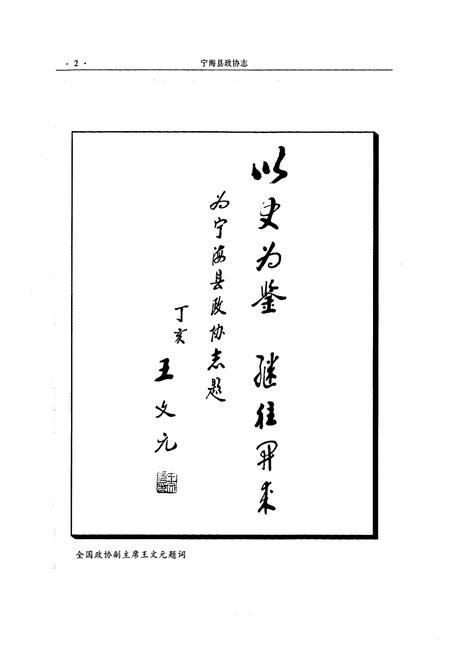 · 2 ·
宁海县政协志
以史为鉴 继往开来
为宁海县政协志题
丁亥
王文元
全国政协副主席王文元题词